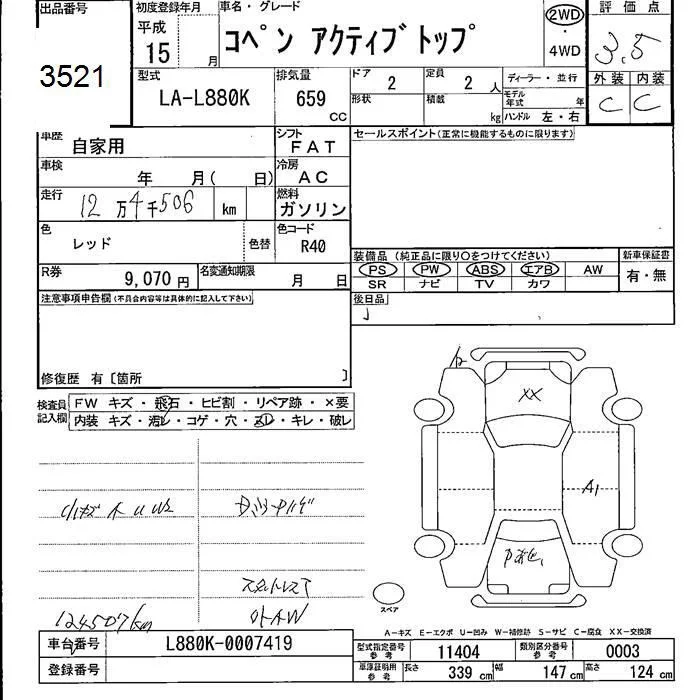 出品番号
3521
初度登録年月
平成
15 月
車名・グレード
コペン アクティブトップ
2WD
・
4WD
評価点
3.5
外装 内装
C C
型式
LA-L880K
排気量
659
CC
ドア
2
定員
2 人
形状
積載
kg
ディーラー・並行
モデル年式 年
ハンドル 左・右
車歴
自家用
シフト
FAT
車検
年 月( 日)
冷房
AC
走行
12万4千506 km
燃料
ガソリン
色
レッド
色替
色コード
R40
R券
9,070 円
名変通知期限
月 日
セールスポイント(正常に機能するものに限ります)
装備品 (純正品に限り○をつけてください)
PS PW ABS エアB AW
SR ナビ TV カワ
新車保証書
有・無
後日品
注意事項申告欄(不具合内容等は具体的に記入して下さい)
修復歴 有〔箇所 〕
検査員記入欄
FW キズ・飛石・ヒビ割・リペア跡・×要
内装 キズ・汚レ・コゲ・穴・スレ・キレ・破レ
XX
A1
スペア
124507km
A-キズ E-エクボ U-凹み W-補修跡 S-サビ C-腐食 XX-交換済
車台番号
L880K-0007419
登録番号
型式指定番号 参考
11404
類別区分番号 参考
0003
車庫証明用 参考
長さ 339 cm
幅 147 cm
高さ 124 cm